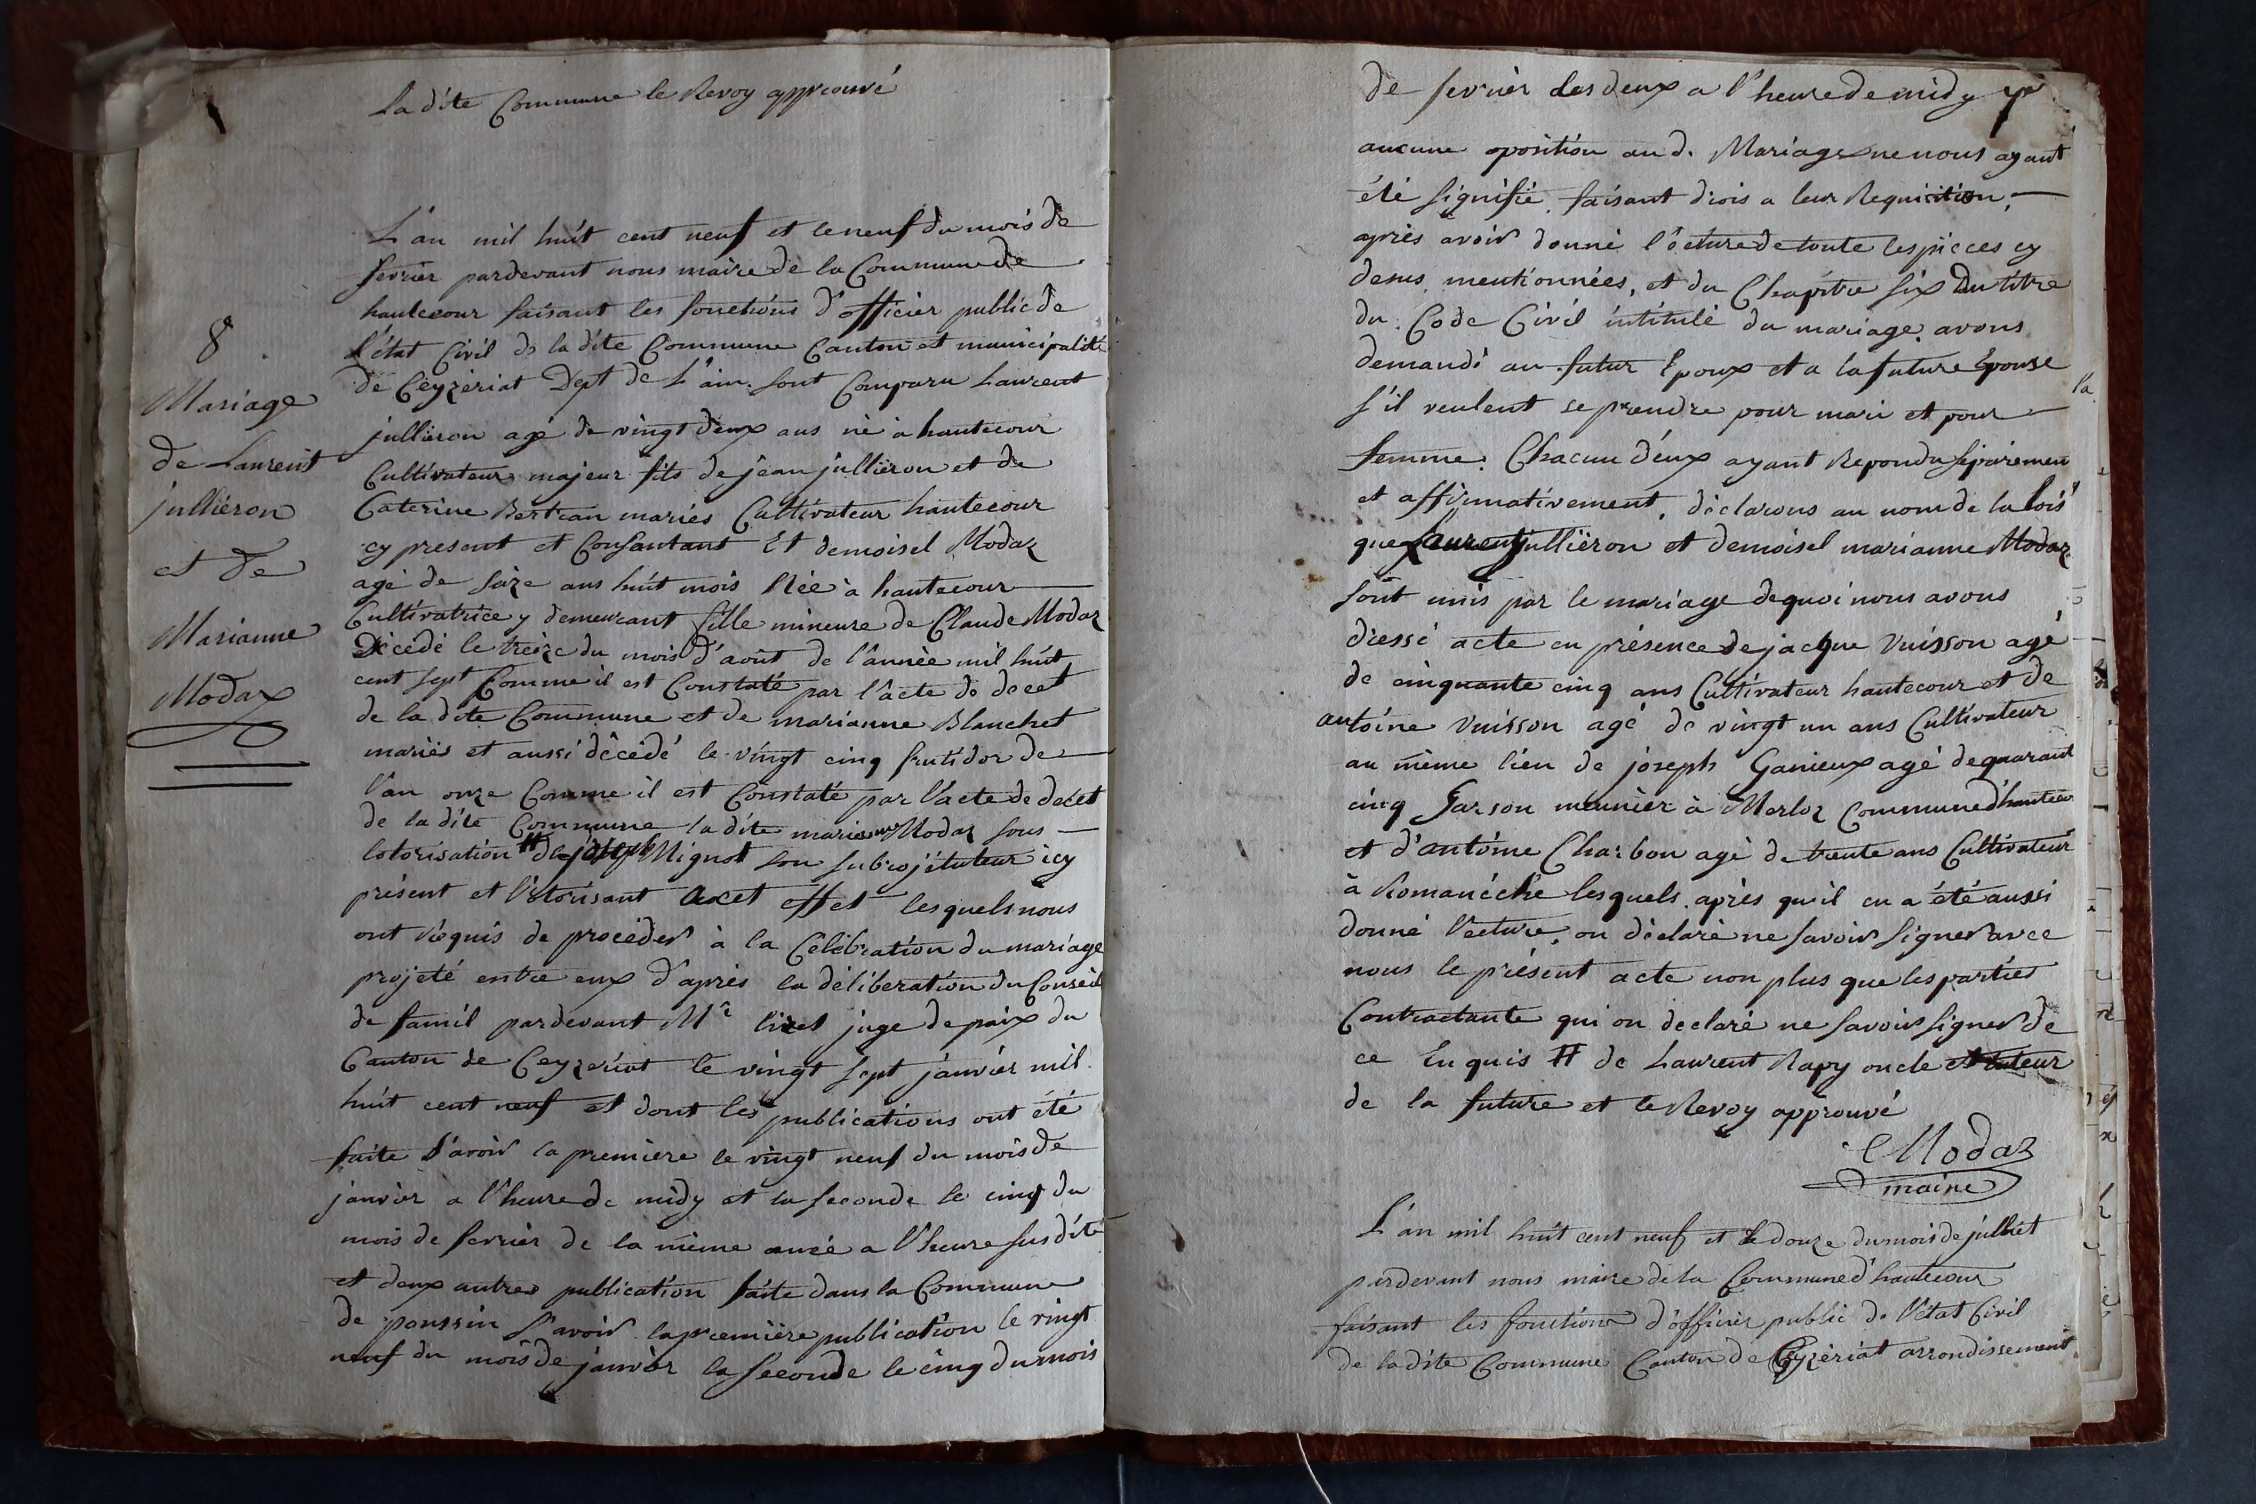 la dite Commune le Revoy approuvé
8
Mariage
de Laurent
jullieron
et de
Marianne
Modaz
L'an mil huit cent neuf et le neuf du mois de
fevrier pardevant nous maire de la Commune de
hautecour faisant les fonctions d'officier public de
l'état Civil de la dite Commune Canton et municipalité
de Ceyzeriat Dept de L'ain. sont Comparu Laurent
jullieron agé de vingt deux ans né à hautecour
Cultivateur majeur fils de jean jullieron et de
Caterine Bertran mariés Cultivateur hautecour
cy present et Consantant Et demoisel Modaz
agé de saize ans huit mois Née à hautecour
Cultivatrice y demeurant fille mineure de Claude Modaz
Décédé le treize du mois d'août de l'année mil huit
cent sept Comme il est Constaté par l'acte de decet
de la dite Commune et de marianne Blanchet
mariés et aussi décédé le vingt cinq frutidor de
l'an onze Comme il est Constaté par l'acte de decet
de la dite Commune la dite marianne Modaz sous
lotorisation # de joseph Mignot son subrojétuteur icy
présent et l'otorisant acet effet lesquels nous
ont réquis de procéder à la Célébration du mariage
projeté entre eux d'après la délibération du Conseil
de famil pardevant Mr juge de paix du
Canton de Ceyzeriat le vingt sept janvier mil
huit cent neuf et dont les publications ont été
faite s'avoir la premiere le vingt neuf du mois de
janvier a l'heure de midy et la seconde le cinq du
mois de fevrier de la même anée a l'heure susdite
et deux autres publication faite dans la Commune
de poussin s'avoir la première publication le vingt
neuf du mois de janvier la seconde le cinq du mois
de fevrier les deux a l'heure de midy
aucune oposition au d. Mariage ne nous ayant
été signifié, faisant drois a leur Requicition,
après avoir donné l'octure de toute les pieces cy
desus mentionnées, et du Chapitre six du titre
du Code Civil intitulé du mariage, avons
demandé au futur Epoux et a la future épouse
s'il veulent se prendre pour mari et pour
femme. Chacun d'eux ayant Repondu séparemen
et affirmativement, déclarons au nom de la lois
que Laurent jullieron et demoisel marianne Modaz
sont unis par le mariage dequoi nous avons
dressé acte en présence de jacque Vuisson agé
de cinquante cinq ans Cultivateur hautecour et de
antoine Vuisson agé de vingt un ans Cultivateur
au même lieu de joseph Ganieux agé de quarant
cinq garson meunier à Merloz Commune d'hautecour
et d'antoine Charbon agé de trente ans Cultivateur
à Romanéche lesquels après qu'il en a été aussi
donné lecture, on déclaré ne savoir signer avec
nous le présent acte non plus que les parties
Contractante qui on declaré ne savoir signer de
ce Enquis # de Laurent Rapy oncle et tuteur
de la future et le Revoy approuvé
Modaz
maire
L'an mil huit cent neuf et le douze du mois de julliet
pardevant nous maire de la Commune d'hautecour
faisant les fonctions d'officier public de l'état Civil
de ladite Commune Canton de Ceyzériat arrondissement